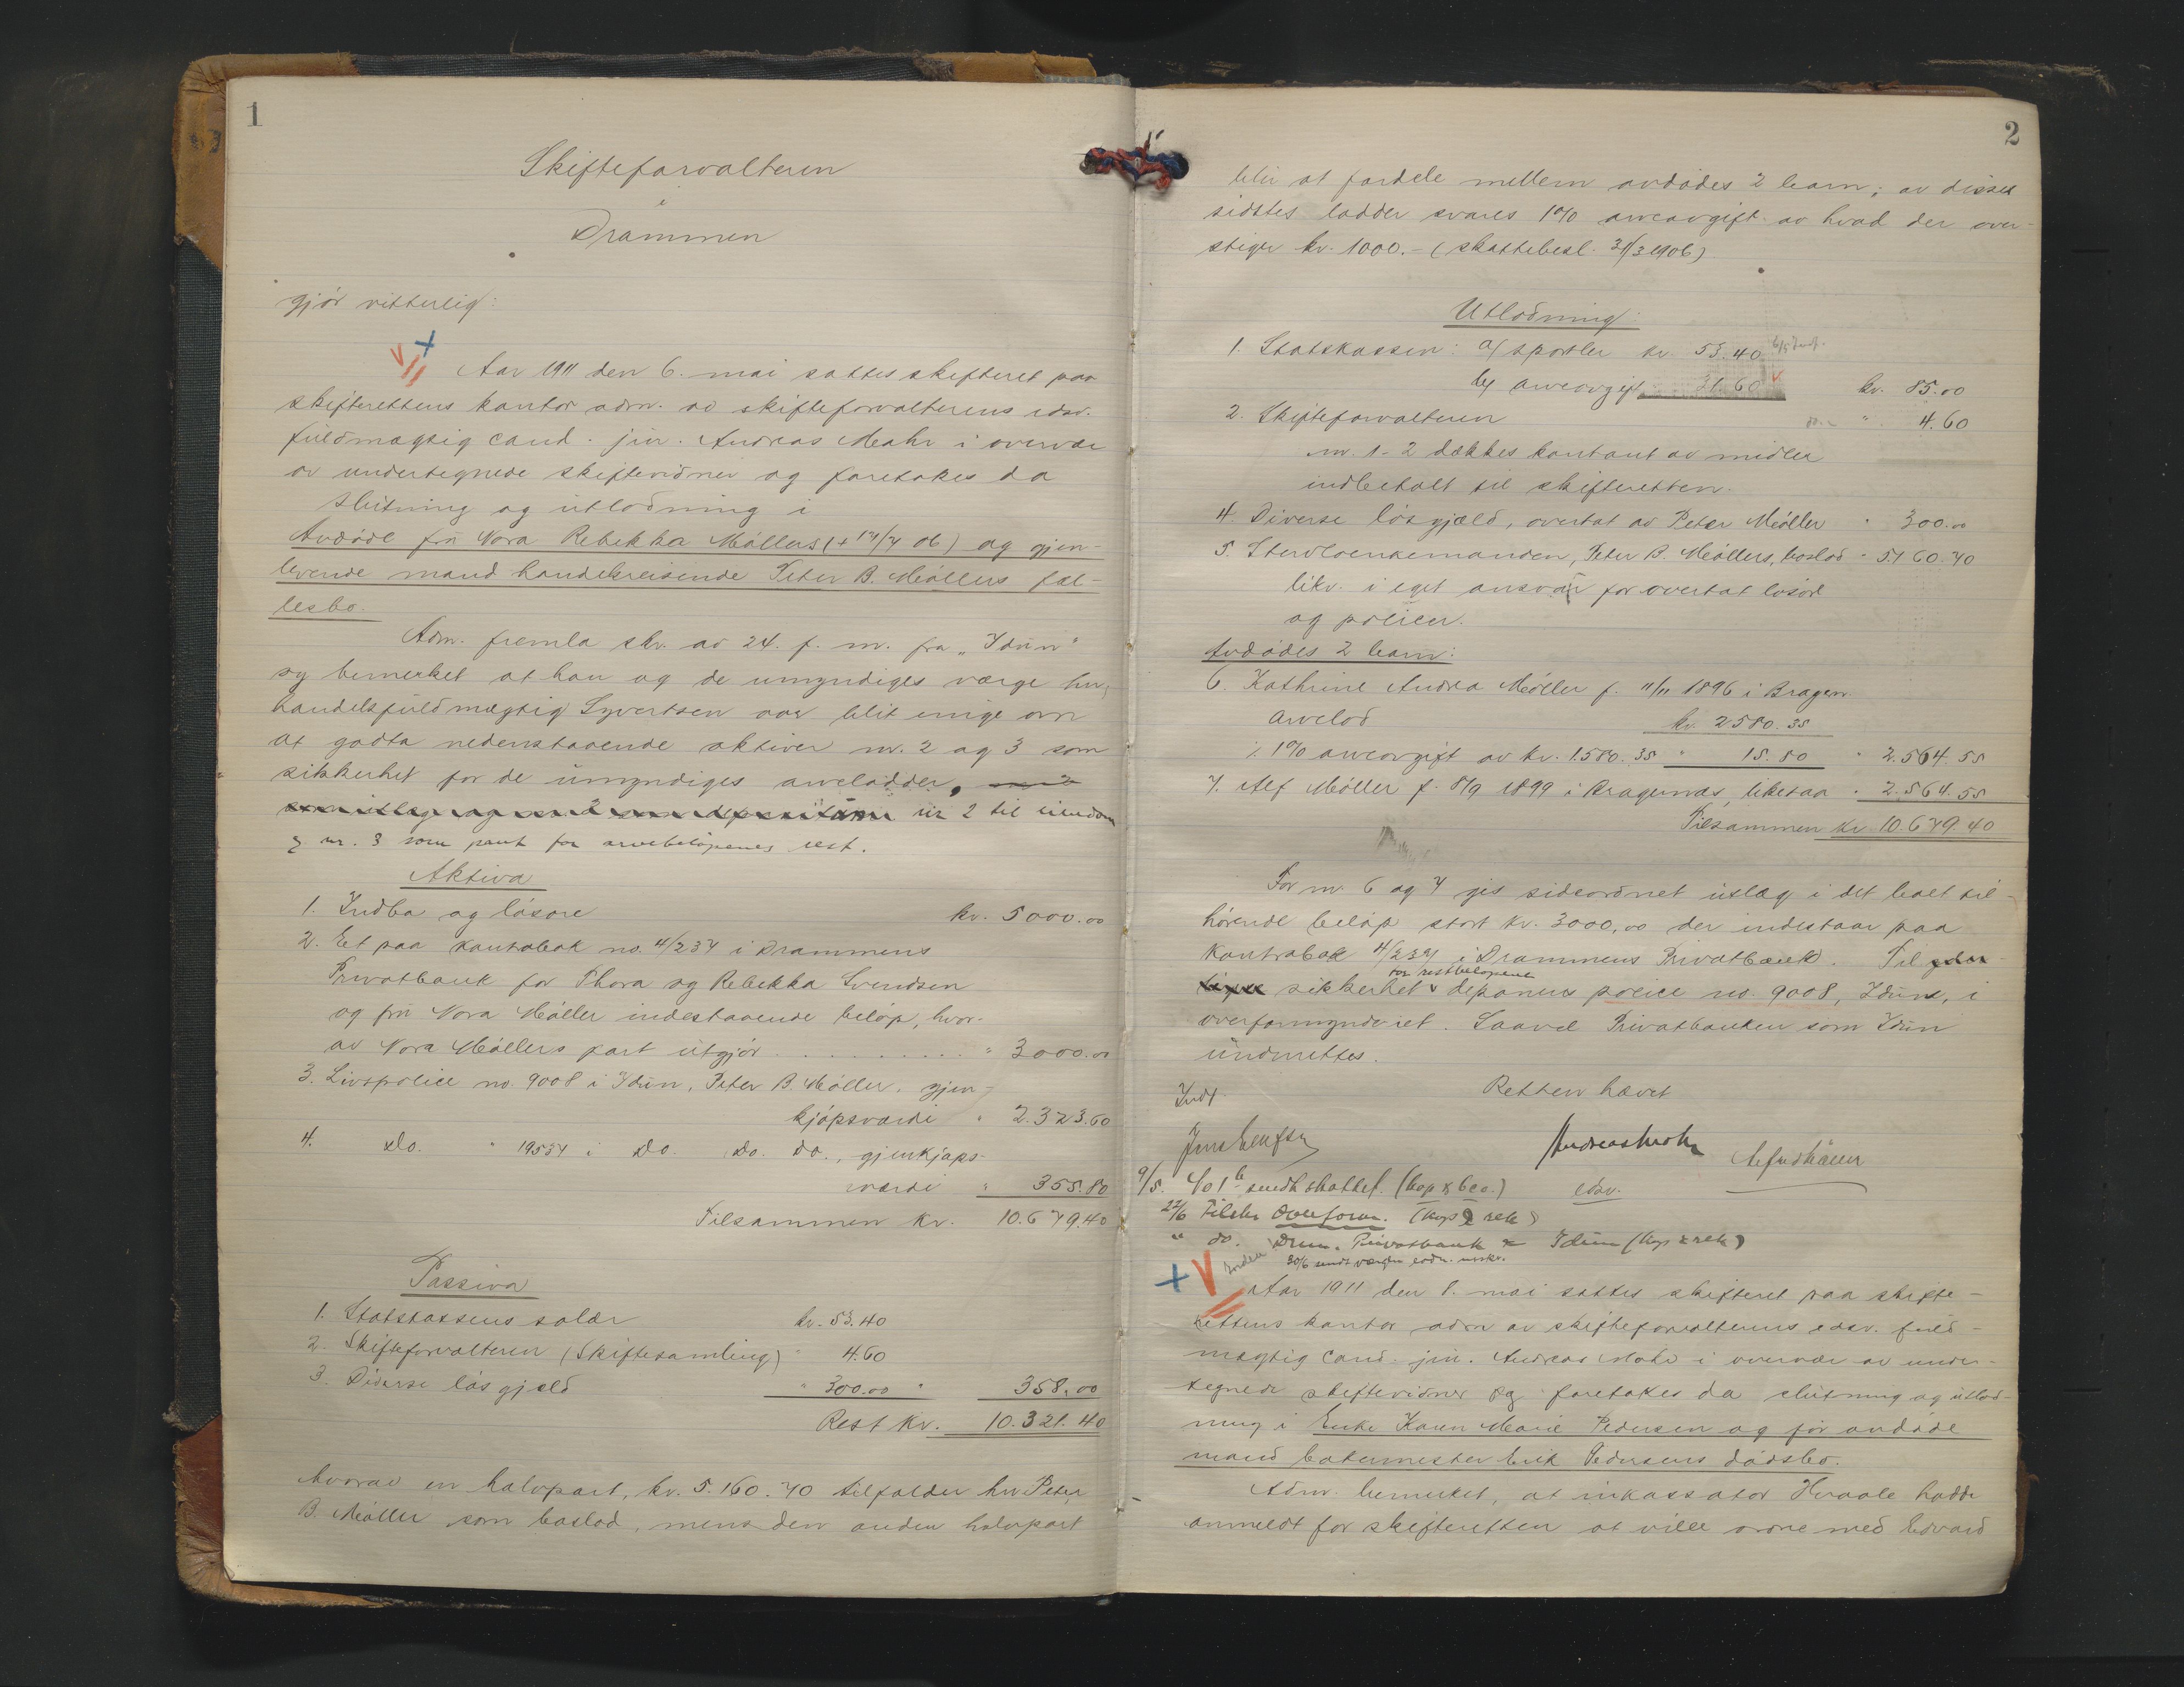 1
Skifteforvalteren
i
Drammen
gjör vitterlig:
Aar 1911 den 6. mai sattes skifteret paa
skifterettens kontor adm. av skifteforvalterens edsv.
fuldmægtig cand. jur. Andreas Mohr i overvær
av undertegnede skiftevidner og foretokes da
slutning og utlodning i
Avdöde fru Nora Rebekka Möllers (+ 14/4 06) og gjen-
levende mand handelsreisende Peter B. Möllers fæl-
lesbo.
Adm. fremla skr. av 24. f. m. fra "Idun"
og bemerket at han og de umyndiges værge hr.
handelsfuldmægtig Syvertsen var blit enige om
at godta nedenstaaende aktiver nr. 2 og 3 som
sikkerhet for de umyndiges arvelodder,
nr 2 til eiendom
& nr. 3 som pant for arvebelöpenes rest.
Aktiva
1. Indbo og lösöre kr. 5000.00
2. Et paa kontrabok no. 4/237 i Drammens
Privatbank for Thora og Rebekka Svendsen
og fru Nora Möller indestaaende belöp, hvor-
av Nora Möllers part utgjör . . . . . . . . . . " 3000.00
3. Livspolice no. 9008 i Idun, Peter B. Möller, gjen-
kjöpsværdi " 2.323.60
4. Do. " 19534 i Do. Do. do., gjenkjöps-
værdi " 355.80
Tilsammen kr. 10.679.40
Passiva
1. Statskassens salær kr. 53.40
2. Skifteforvalteren (Skiftesamling) " 4.60
3. Diverse lösgjæld " 300.00 " 358.00
Rest kr. 10.321.40
hvorav en halvpart, kr. 5.160.70 tilfalder hr Peter
B. Möller som boslod, mens den anden halvpart
2
blir at fordele mellem avdödes 2 barn; av disses
sidstes lodder svares 1% arveavgift av hvad der over-
stiger kr. 1000.- (skattebesl. 31/3 1906)
Utlodning:
1. Statskassen: a/ sportler kr. 53.40
b/ arveavgift 31.60 kr. 85.00
2. Skifteforvalteren " 4.60
nr. 1-2 dækkes kontant av midler
indbetalt til skifteretten.
4. Diverse lösgjæld, overtat av Peter Möller " 300.00
5. Stervboenkemanden, Peter B. Möllers, boslod " 5160.70
likv. i eget ansvar for overtat lösöre
og policer.
Avdödes 2 barn:
6. Kathrine Andrea Möller f. 11/11 1896 i Bragern.
Arvelod kr. 2580.35
÷ 1% arveavgift av kr. 1580.35 " 15.80 " 2.564.55
7. Alf Möller f. 8/9 1899 i Bragernæs, likesaa " 2.564.55
Tilsammen kr. 10.679.40
For nr. 6 og 7 gis sideordnet utlæg i det boet til-
hörende belöp stort kr. 3000,00 der indestaar paa
kontrabok 4/237 i Drammens Privatbank. Til yder
for restbelöpene
sikkerhet deponeres police no. 9008, Idun, i
overformynderiet. Saavel Privatbanken som Idun
underrettes.
Retten hævet
Indf.
Andreas Mohr
edsv.
9/5. sendt skattef.
22/6 Tilskr. Overform.
" do. Drm. Privatbank & Idun
30/6 sendt
Aar 1911 den 8. mai sattes skifteret paa skifte-
rettens kontor adm av skifteforvalterens edsv. fuld-
mægtig cand. jur. Andreas Mohr i overvær av under-
tegnede skiftevidner og foretokes da slutning og utlod-
ning i Enke Karen Marie Pedersen og för avdöde
mand Erik Pedersens dödsbo.
Adm. bemerket, at inkassator Hvaale hadde
anmeldt for skifteretten at ville ordne med Edvard